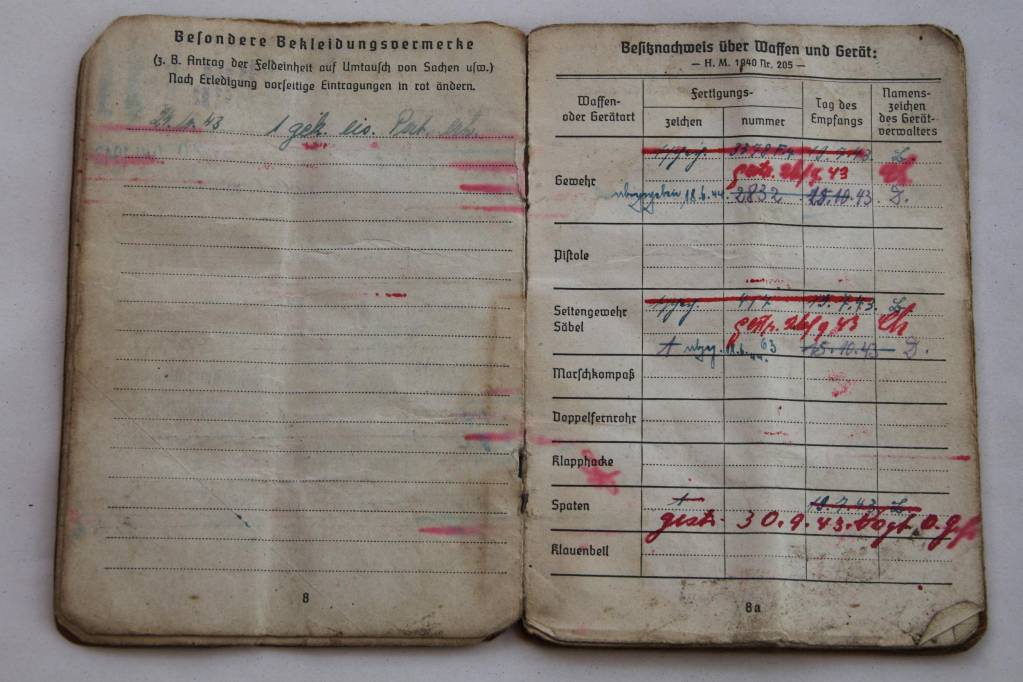 Besondere Bekleidungsvermerke
(z. B. Antrag der Feldeinheit auf Umtausch von Sachen usw.)
Nach Erledigung vorseitige Eintragungen in rot ändern.
43 1
8
Besitznachweis über Waffen und Gerät:
— H. M. 1940 Nr. 205 —
Waffen- oder Geräteart Fertigungs- zeichen nummer Tag des Empfangs Namens- zeichen des Gerät- verwalters
19.7.43.
Gewehr gestr. 43
abgegeben 18.6.44. 2832 25.10.43 D.
Pistole
Seitengewehr 417 19.7.43.
Säbel gestr. 43
63 25.10.43 D.
Marschkompaß
Doppelfernrohr
Klapphacke
Spaten 19.7.43
gestr. 30.9.43.
Klauenbeil
8a